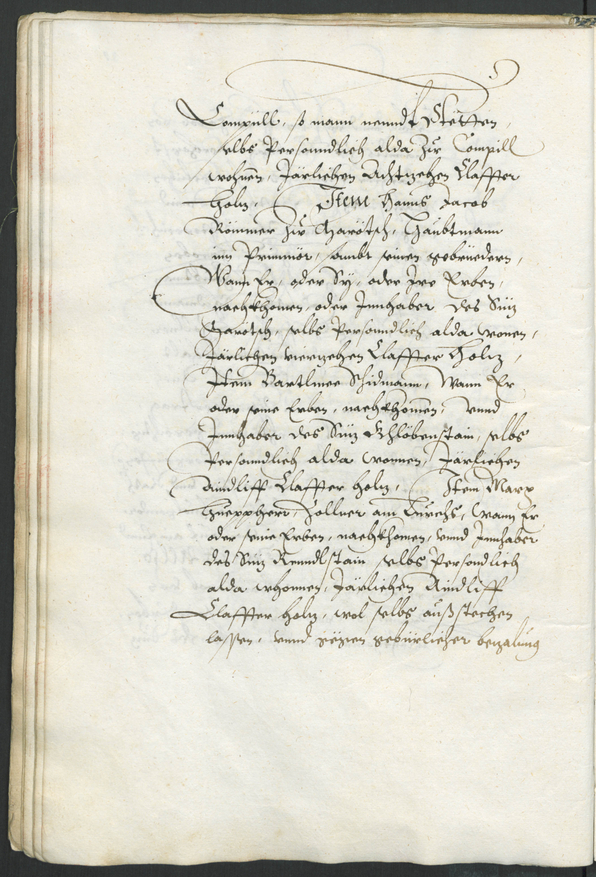 Compill, so mann nenndt Stetten,
selbs Persoundlich alda zur Compill
wohnen, Järlichen Achtzehen Claffter
holz, Item Hanns Jacob
Römmer zu Maretsch, Haubtmann
im Primmör, sambt seinen gebrüedern,
Wann Er, oder Sy, oder Ire Erben,
nachkhomen, oder Innhaber des Siz
Maretsch, selbs Persoundlich alda wonen,
Järlichen vierzehen Claffter holz,
Item Bartlmee Schidmann, Wann Er
oder seine Erben, nachkhomen, vnnd
Innhaber des Siz Schlöbenstain, selbs
Persoundlich alda wonnen, Järlichen
Aindliff Claffter holz, Item Marx
Khueppherr Zollner am Lueg, wann Er
oder seine Erben, nachkhomen, vnnd Innhaber
des Siz Renndlstain selbs Persondlich
alda whonnen, Järlichen Aindliff
Claffter holz, wol selbs außstechen
lassen, vnnd gegen gebürlicher bezalung